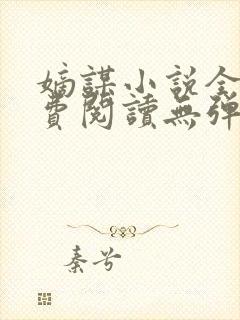 嫡謀小説全
費閱讀無彈
秦兮